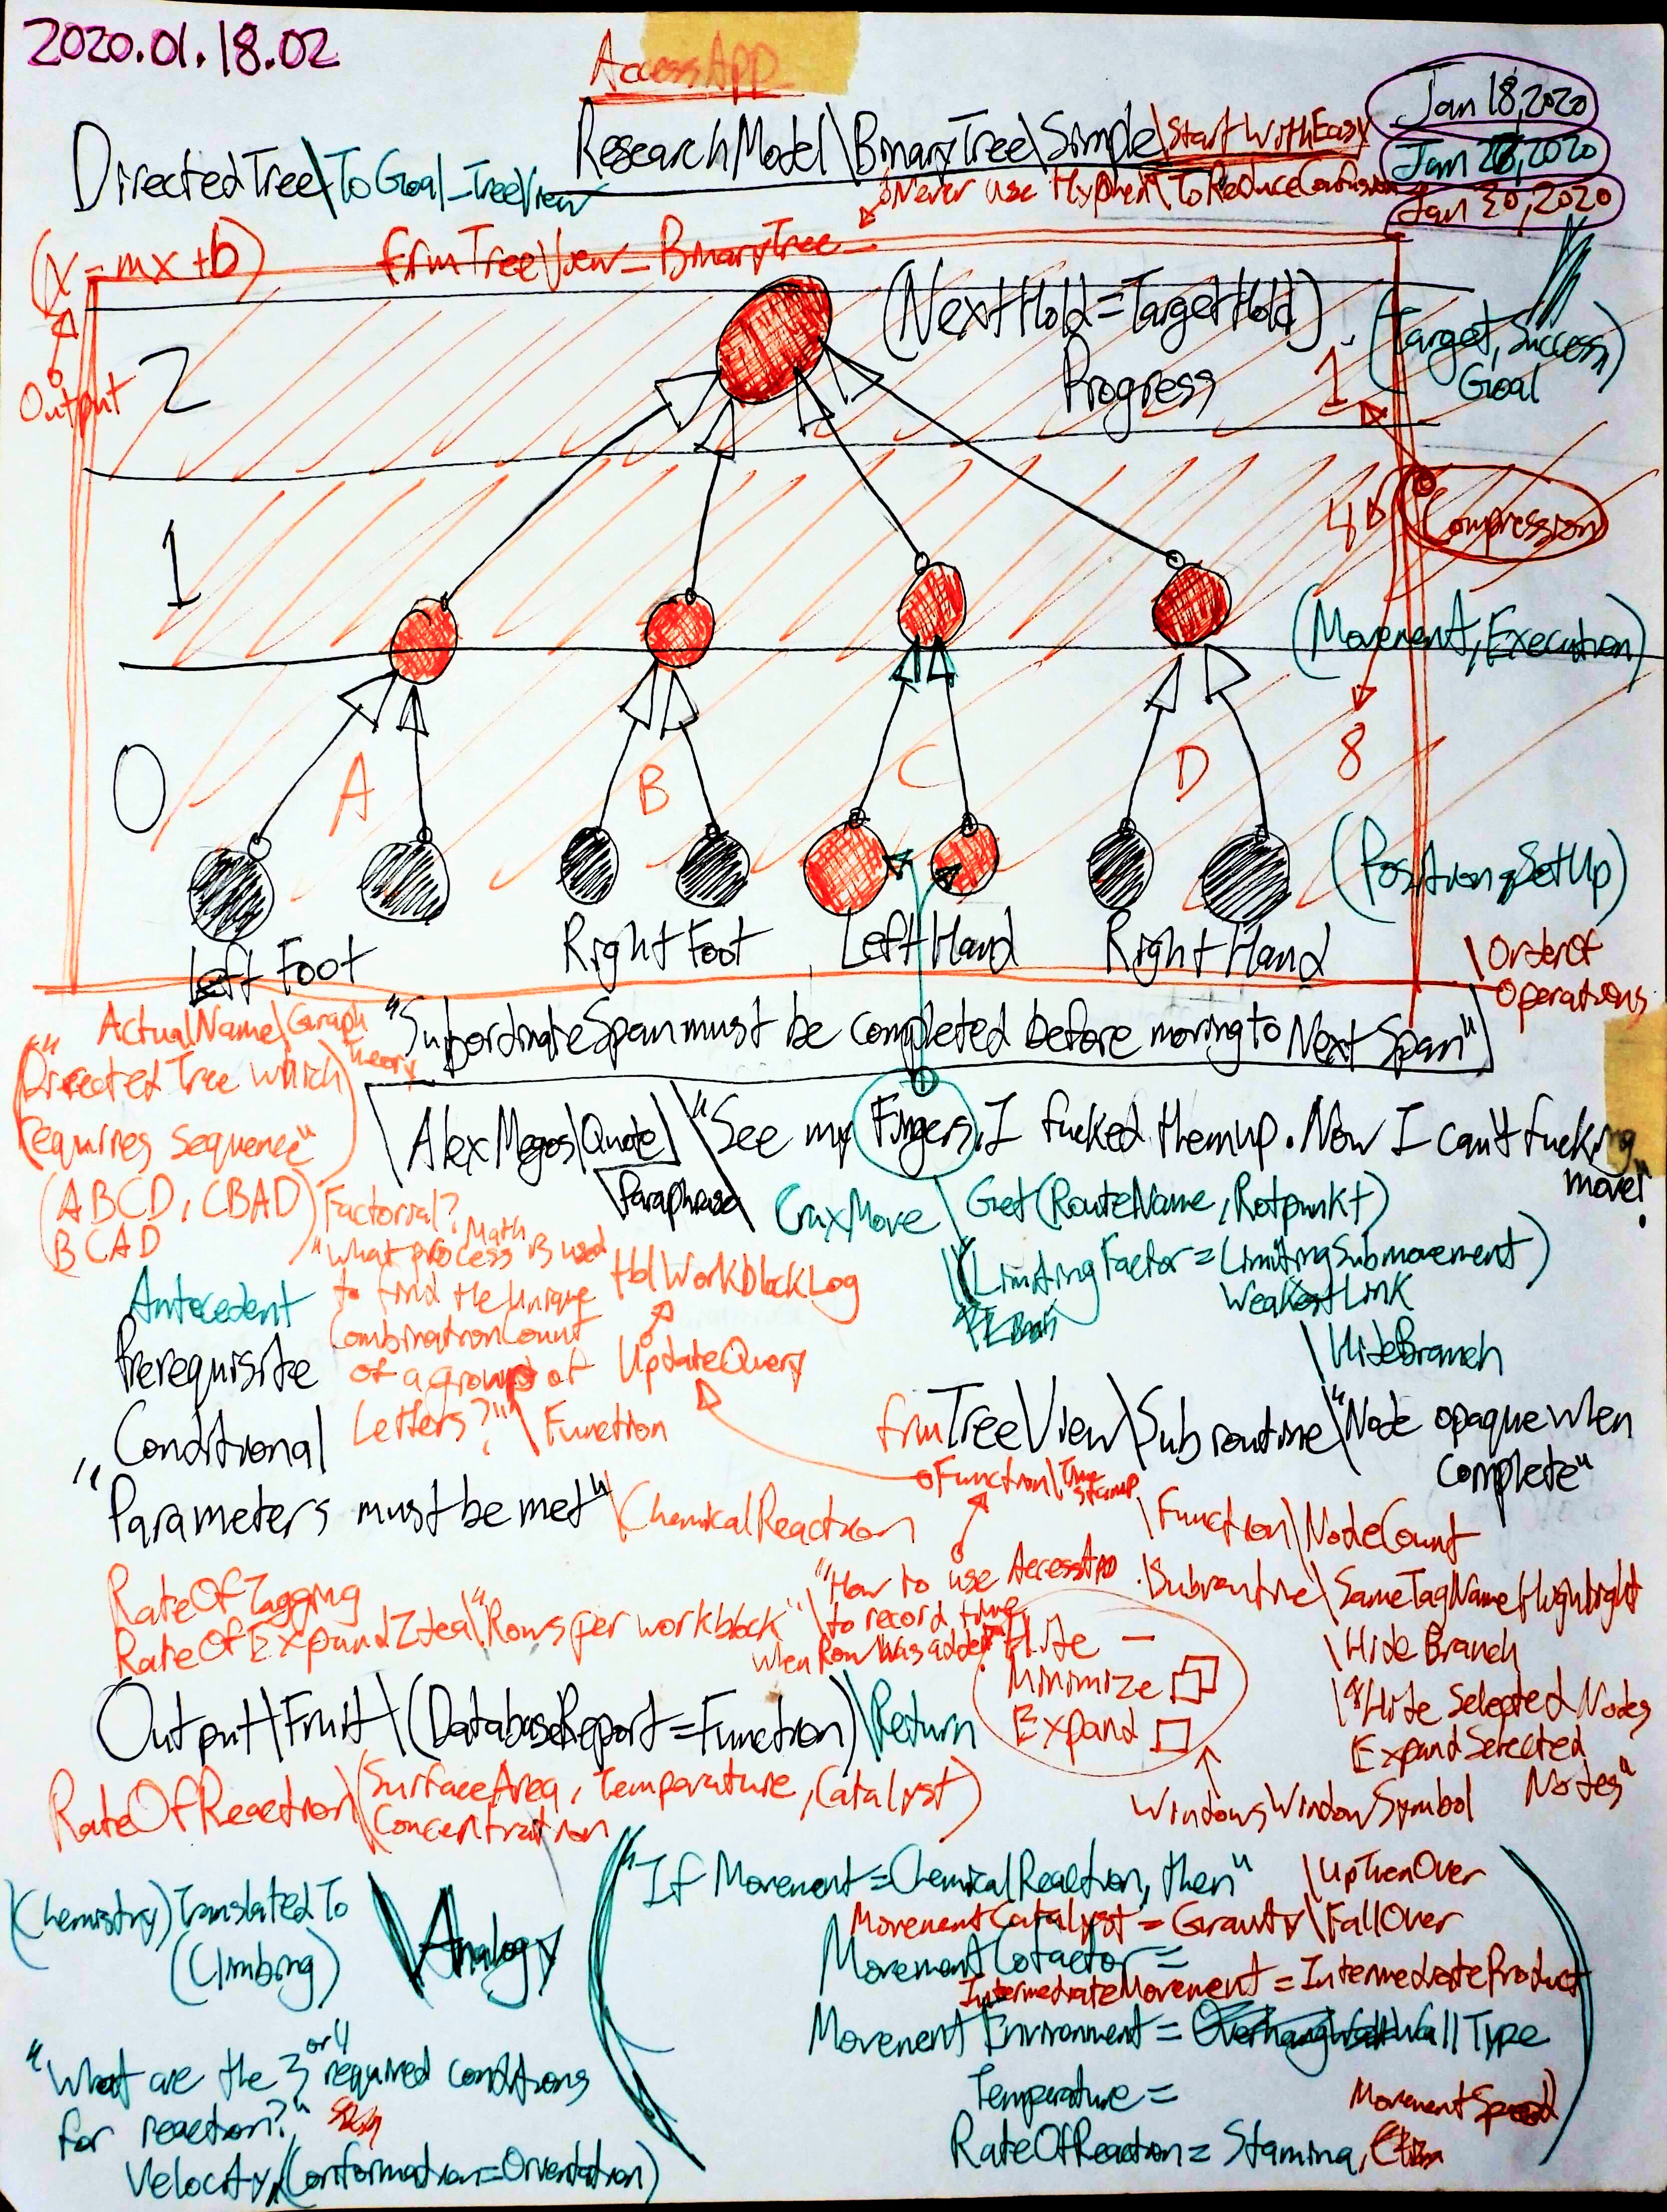 2020.01.18.02
AccessApp
Jan 18, 2020
ResearchModel\BinaryTree\Simple\StartWithEasy
Jan 2, 2020
DirectedTree\ToGoal_TreeView
Never use Hyphen\ToReduceConfusion
Jan 20, 2020
(Y=mx+b)
frmTreeView_BinaryTree
Output
2
(NextHold=TargetHold)
Progress
1
(Target, Success)
Goal
1
4
Compression
(Movement, Execution)
0
A
B
C
D
8
(PositioningSetUp)
Left Foot
Right Foot
Left Hand
Right Hand
\OrderOf
Operations
ActualName\Graph
Theory
"SubordinateSpan must be completed before moving to Next Span"
"Directed Tree which
requires sequence"
AlexMegos\Quote\"See my Fingers, I fucked them up. Now I can't fucking
move!
Paraphrase
(ABCD, CBAD)
BCAD
Factorial?
Math
"What process is used
to find the Unique
CombinationCount
of a group of
Letters?"\Function
CruxMove\Get(RouteName, Rotpunkt)
\(LimitingFactor=LimitingSubmovement)
WeakestLink
\HideBranch
tblWorkblockLog
UpdateQuery
Antecedent
Prerequisite
Conditional
"Parameters must be met"\ChemicalReaction
frmTreeView\Subroutine\"Node opaque when
complete"
Function\Time
stamp
\Function\NodeCount
\Subroutine\SameTagNameHighlight
\HideBranch
\"Hide Selected Nodes
Expand Selected
Nodes"
RateOfTagging
RateOfExpandIdea\"Rows per workblock"
\"How to use AccessApp
to record time
when Row was added"
Hide
Minimize
Expand
WindowsWindowSymbol
Output\Fruit\(DatabaseReport=Function)\Return
RateOfReaction\(SurfaceArea, Temperature, Catalyst)
Concentration
(Chemistry)TranslatedTo
(Climbing)
\Analogy
"If Movement=ChemicalReaction, then"
\UpThenOver
MovementCatalyst=Gravity\FallOver
MovementCofactor=
IntermediateMovement=IntermediateProduct
MovementEnvironment=WallType
Temperature=
MovementSpeed
RateOfReaction=Stamina,
"What are the 3 or 4 required conditions
for reaction?"
Velocity, (Conformation=Orientation)